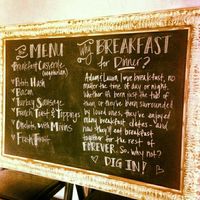 the MENU
Breakfast Casserole
(vegetarian)
Bacon
Turkey Sausage
French Toast & Toppings
Omelets with
Fresh Fruit
Why BREAKFAST
for Dinner?
Adam & Laura love breakfast, no
matter the time of day or night,
whether it's been just the two of
them or they've been surrounded
by loved ones, they've enjoyed
many breakfast dates - and
now they'll eat breakfast
together for the rest of
FOREVER. So, why not?
DIG IN!